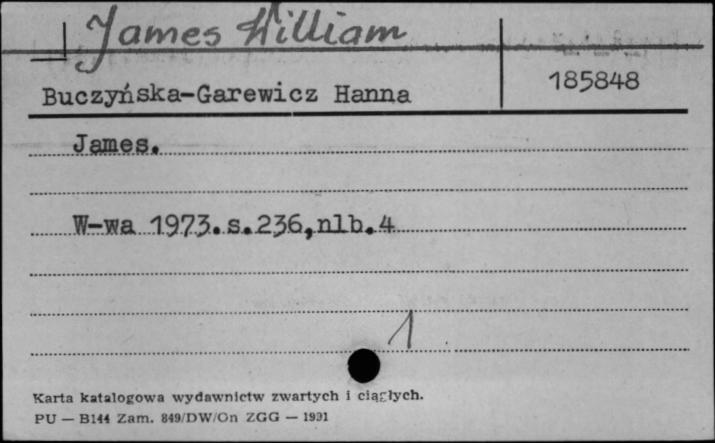 James William
Buczyńska-Garewicz Hanna
185848
James.
W-wa 1973.s.236,nlb.4
1
Karta katalogowa wydawnictw zwartych i ciągłych.
PU — B144 Zam. 849/DW/On ZGG — 1991